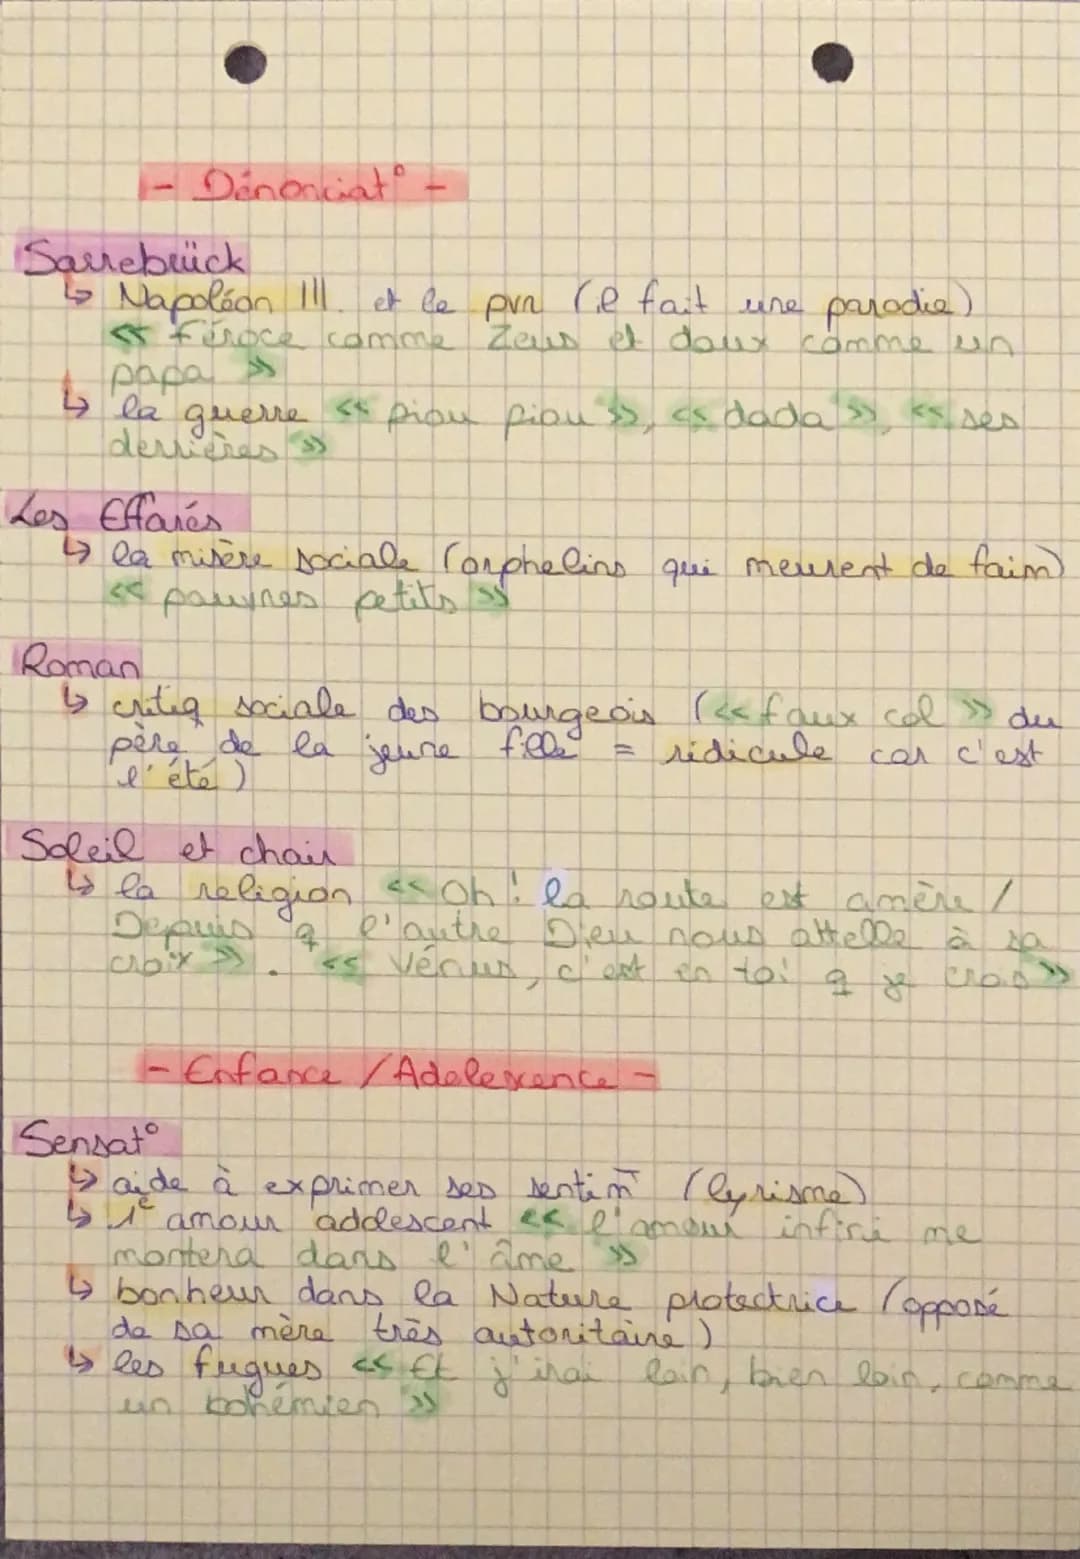 - Dénonciat° -
Sarrebrück
↳ Napoléon III. et le pvr (il fait une parodie)
« Féroce comme Zeus et doux comme un
papa »
↳ la guerre « piou piou », « dada », « ses
derrières »
Les Effarés
↳ la misère sociale (orphelins qui meurent de faim)
« pauvres petits »
Roman
↳ critiq sociale des bourgeois (« faux col » du
père de la jeune fille = ridicule car c'est
l'été)
Soleil et chair
↳ la religion « Oh ! la route est amère /
Depuis q l'autre Dieu nous attelle à sa
croix ». « Vénus, c'est en toi q je crois »
- Enfance / Adolescence -
Sensat°
↳ aide à exprimer ses sentim̄ (lyrisme)
↳ 1e amour adolescent « l'amour infini me
montera dans l'âme »
↳ bonheur dans la Nature protectrice (opposé
de sa mère très autoritaire)
↳ les fugues « Et j'irai loin, bien loin, comme
un bohémien »